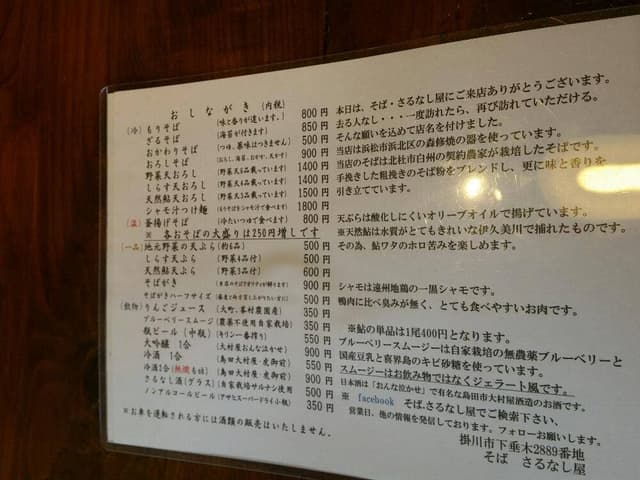 おしながき (内税)
(冷) もりそば (味と香りが違います。) 800円
ざるそば (海苔が付きます) 850円
おかわりそば (つゆ、薬味はつきません) 500円
おろしそば 900円
野菜天おろし (野菜天6品載っています) 1400円
しらす天おろし 1400円
天然鮎天おろし 1500円
シャモ汁つけ麺 1800円
(温) 釜揚げそば (冷たいつゆで食べます) 800円
※ 各おそばの大盛りは250円増しです
(一品) 地元野菜の天ぷら (約6品) 500円
しらす天ぷら (野菜4品付) 500円
天然鮎天ぷら (野菜3品付) 600円
そばがき 900円
そばがきハーフサイズ 500円
(飲物) りんごジュース (大町、峯村農園産) 350円
ブルーベリースムージ (農薬不使用自家栽培) 350円
瓶ビール (中瓶) (キリン一番搾り) 550円
大吟醸 1合 (大村屋おんな泣かせ) 900円
冷酒 1合 (島田大村屋・売御前) 550円
冷酒1合(無濾過) (島田大村屋・売御前) 550円
さるなし酒(グラス) (自家栽培サルナシ使用) 500円
ノンアルコールビール (アサヒスーパードライ小瓶) 350円
※お車を運転される方には酒類の販売はいたしません。
本日は、そば・さるなし屋にご来店ありがとうございます。
去る人なし・・・一度訪れたら、再び訪れていただける。
そんな願いを込めて店名を付けました。
当店は浜松市浜北区の森修焼の器を使っています。
当店のそばは北杜市白州の契約農家が栽培したそばです。
手挽きした粗挽きのそば粉をブレンドし、更に味と香りを
引き立てています。
天ぷらは酸化しにくいオリーブオイルで揚げています。
※天然鮎は水質がとてもきれいな伊久美川で捕れたものです。
その為、鮎ワタのホロ苦みを楽しめます。
シャモは遠州地鶏の一黒シャモです。
鴨肉に比べ臭みが無く、とても食べやすいお肉です。
※鮎の単品は1尾400円となります。
ブルーベリースムージーは自家栽培の無農薬ブルーベリーと
国産豆乳と喜界島のキビ砂糖を使っています。
スムージーはお飲み物ではなくジェラート風です。
日本酒は「おんな泣かせ」で有名な島田市大村屋酒造のお酒です。
※ facebook そば.さるなし屋でご検索下さい、
営業日、他の情報を発信しております。フォローお願いします。
掛川市下垂木2889番地
そば さるなし屋